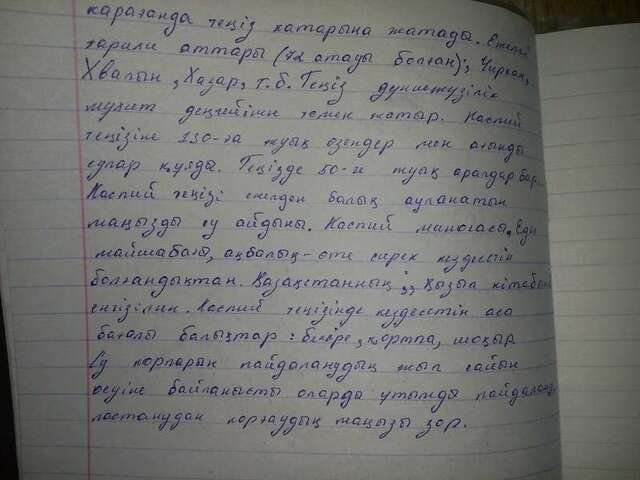 қарағанда теңіз қатарына жатады. Ежелгі
тарихи аттары (72 атауы болған); Чиркан,
Хвалын, Хазар, т.б. Теңіз дүниежүзілік
мұхит деңгейінен төмен жатыр. Каспий
теңізіне 130-ға жуық өзендер мен ағынды
сулар құяды. Теңізде 50-ге жуық аралдар бар.
Каспий теңізі ежелден балық ауланатын
маңызды су айдыны. Каспий миногасы, Еділ
майшабағы, ақбалық - өте сирек кездесетін
болғандықтан. Қазақстанның ;; Қызыл кітабына
енгізілген. Каспий теңізінде кездесетін аса
бағалы балықтар: бекіре, қортпа, шоқыр
Су қорларын пайдаланудың жыл сайын
өсуіне байланысты оларды ұтымды пайдалану,
ластанудан қорғаудың маңызы зор.